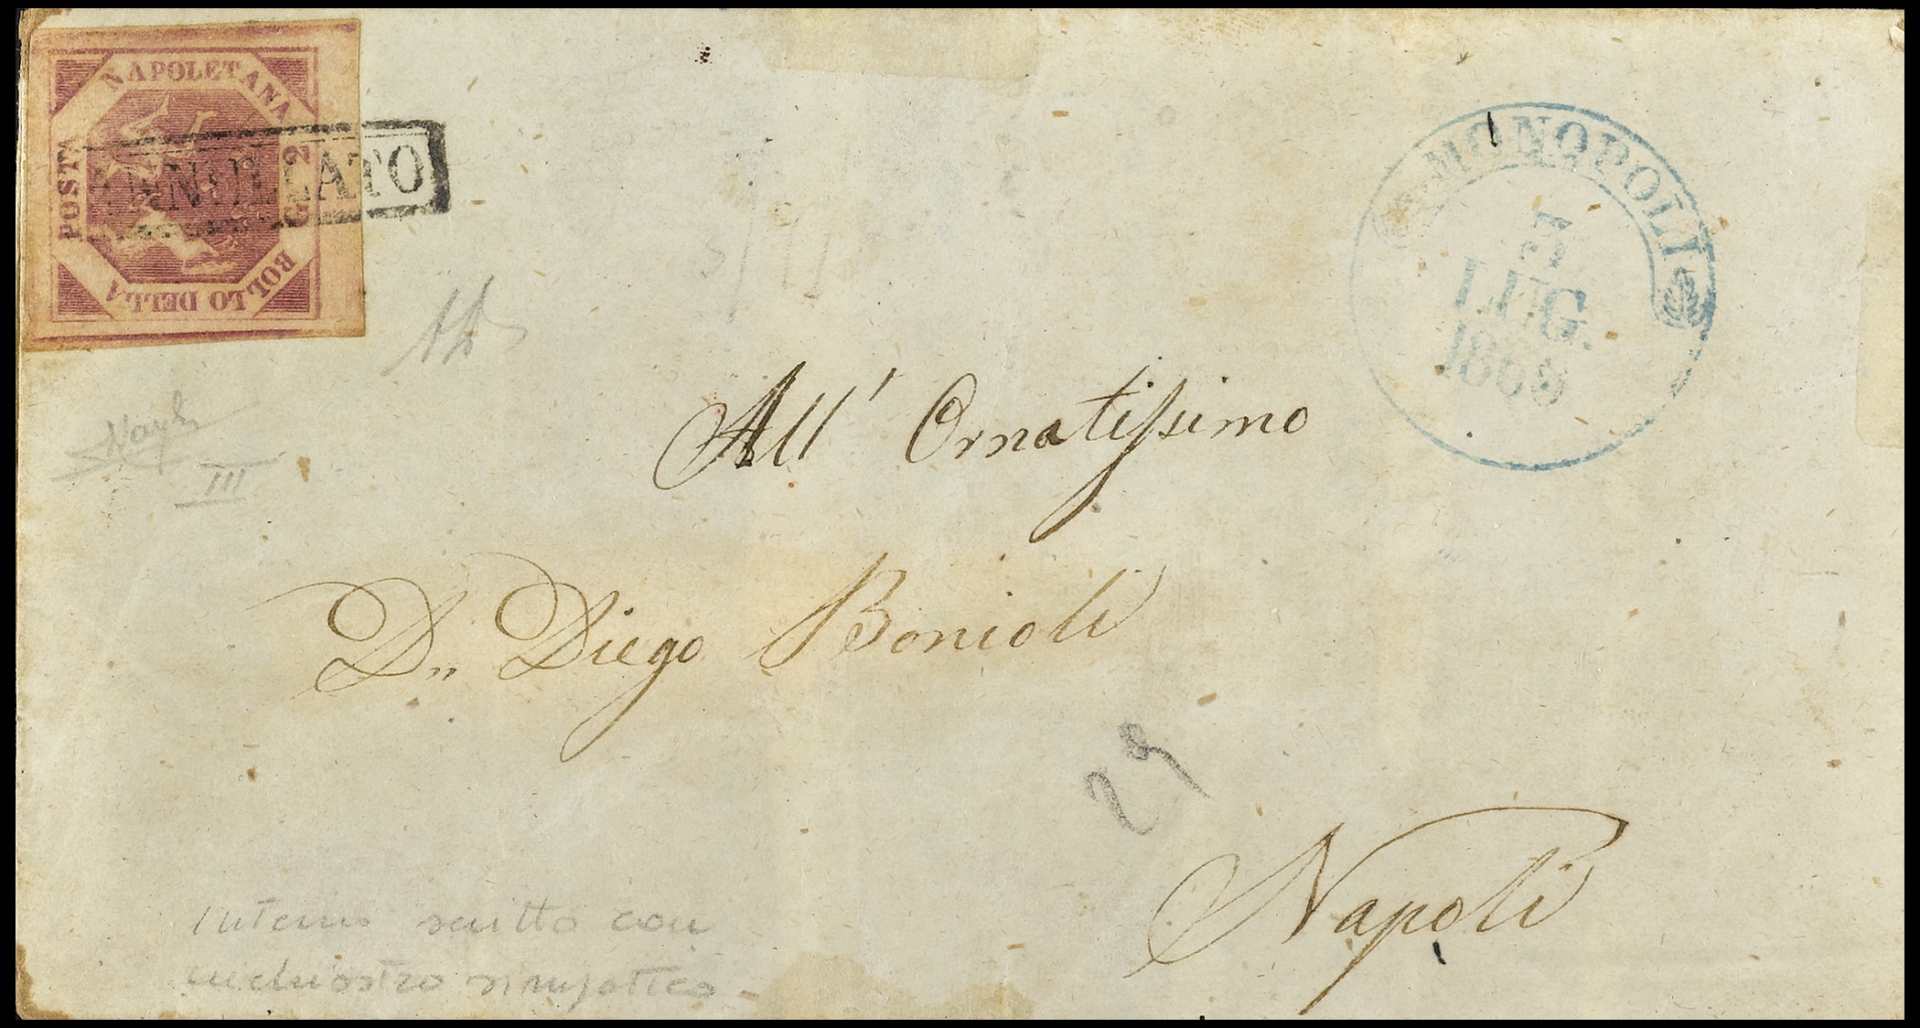 BOLLO DELLA
POSTA
NAPOLETANA
G. 2
ANNULLATO
MONOPOLI
5
LUG.
1860
All' Ornatissimo
D.n Diego Bonioli
29
Napoli
III
Interno scritto con
inchiostro simpatico